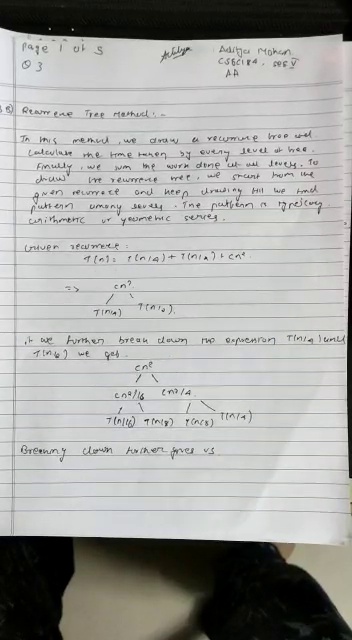 Page 1 of 5
Aditya Mohan
Q3
CSE, SEC V
AA
Recurrence Tree Method:-
In this method, we draw a recurrence tree and
calculate the time taken by every level of tree.
Finally, we sum the work done at all levels. To
draw the recurrence tree, we start from the
given recurrence and keep drawing till we find
pattern among levels. The pattern is typically
arithmetric or geometric series.
Given recurrence:
T(n) = T(n/4) + T(n/2) + cn²
=> cn²
T(n/4) T(n/2).
if we further break down the expression T(n/4) and
T(n/2) we get.
cn²
cn²/16 cn²/4
T(n/16) T(n/8) T(n/8) T(n/4)
Breaking down further gives us